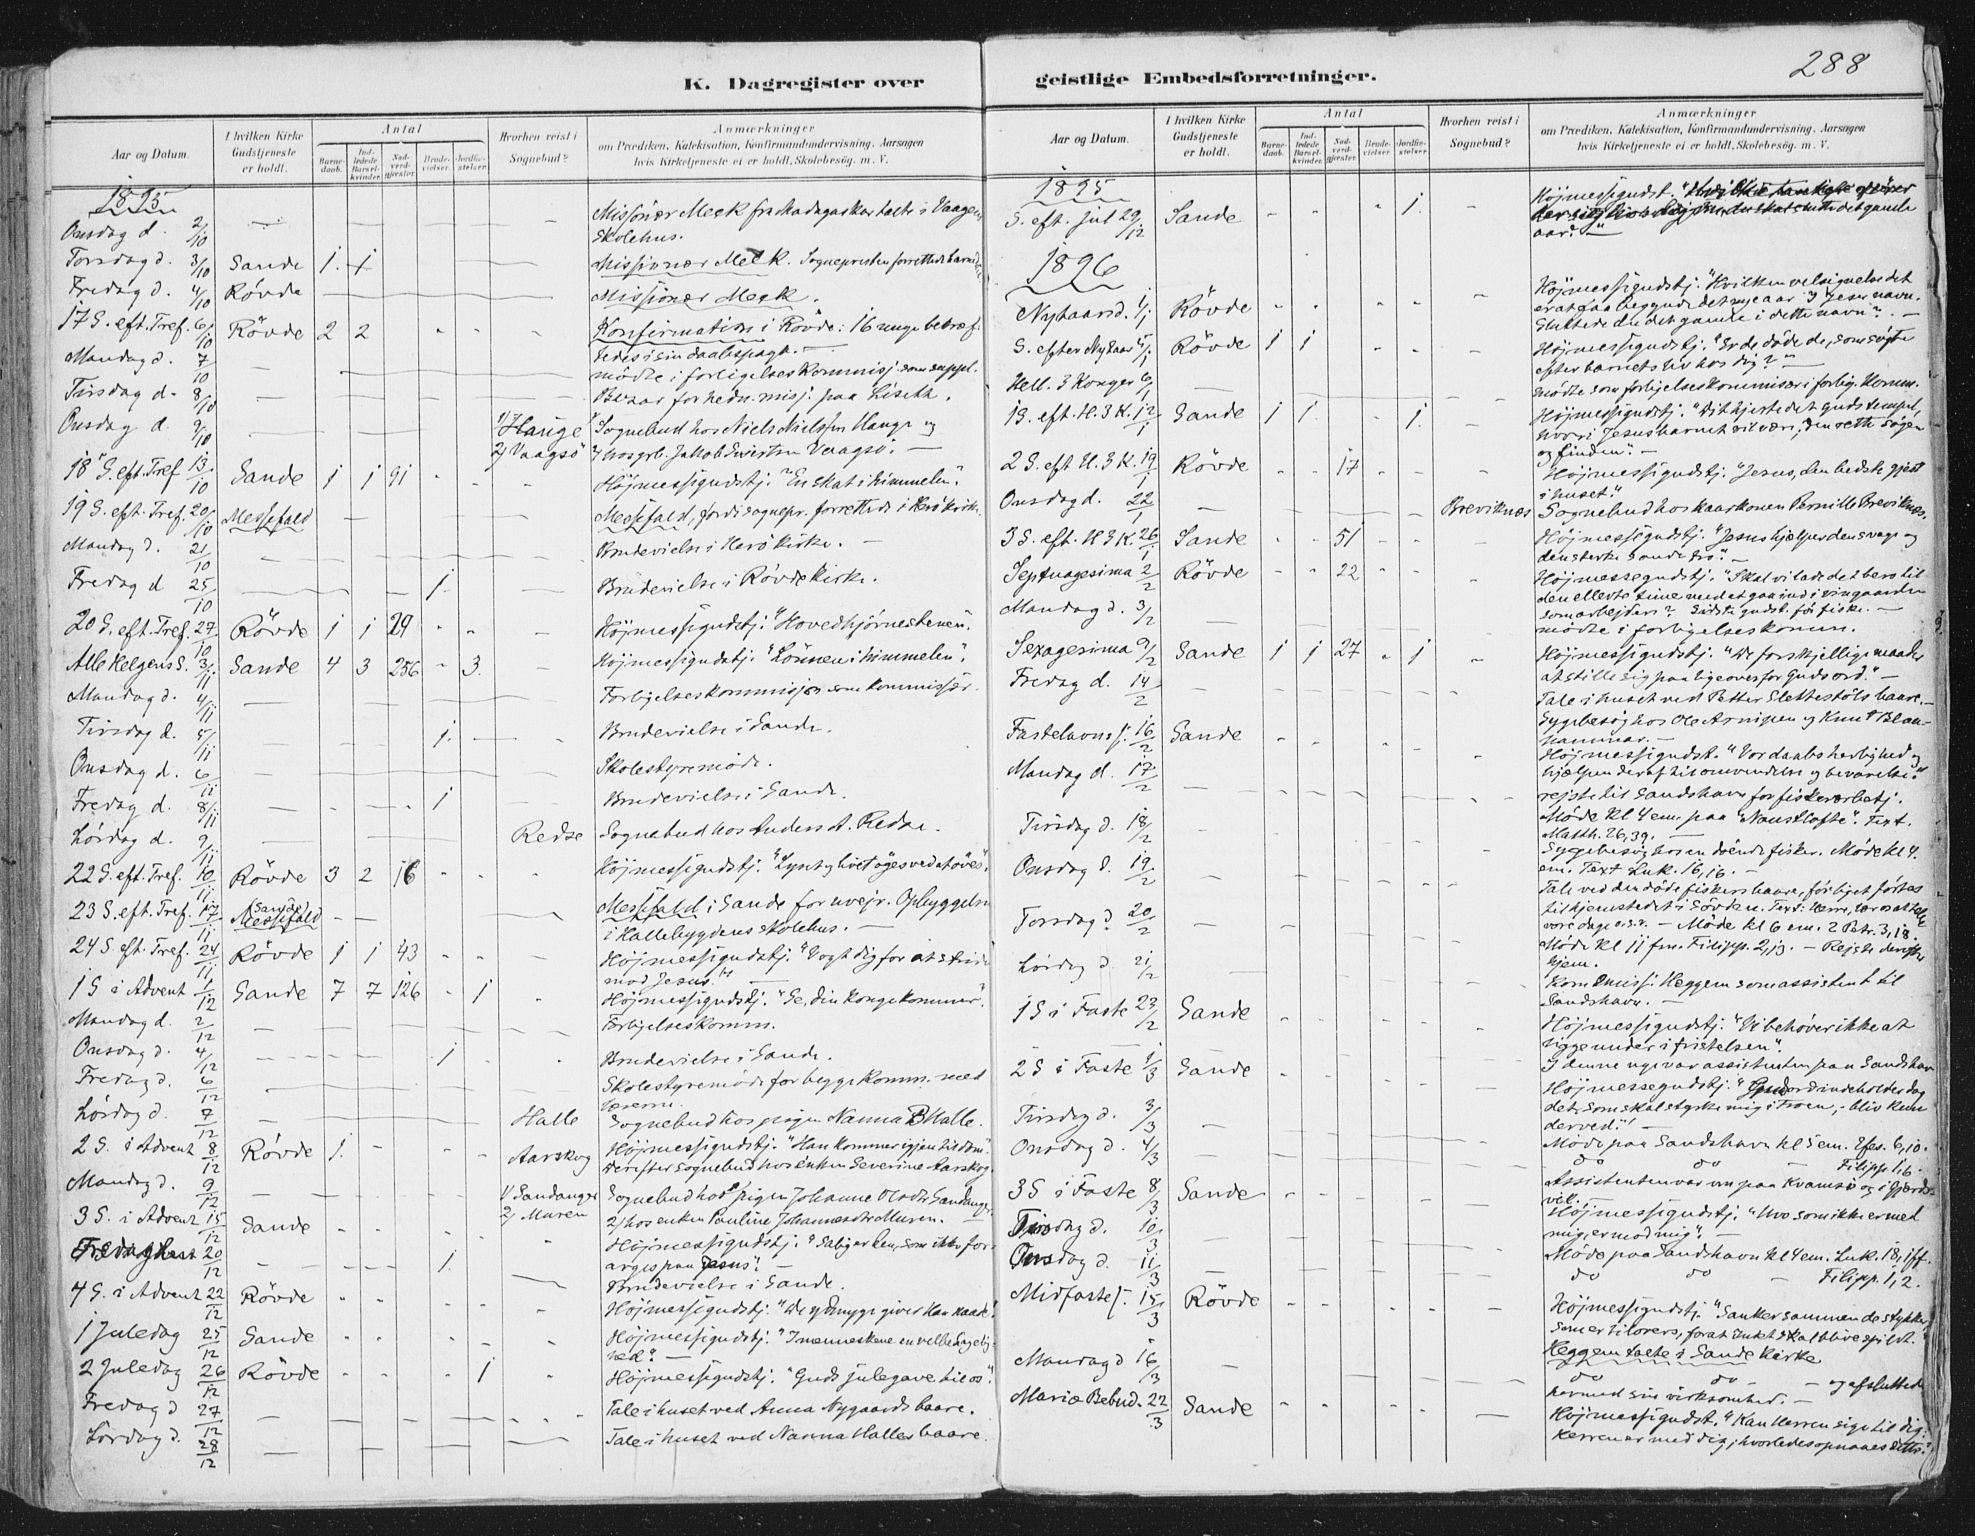 288
K. Dagregister over
geistlige Embedsforretninger.
Aar og Datum.
I hvilken Kirke Gudstjeneste er holdt.
Antal
Barnedaab.
Indledede Barselkvinder.
Nadverdgjæster.
Brudevielser.
Jordfæstelser.
Hvorhen reist i Sognebud?
Anmærkninger
om Prædiken, Katekisation, Konfirmandundervisning, Aarsagen
hvis Kirketjeneste ei er holdt, Skolebesøg. m. V.
1895
Onsdag d. 2/10 — Missionær Meek fra Madagaskar talte i Vaagens
Skolehus.
Torsdag d. 3/10 Sande 1. 1 Missionær Meek. Sognepresten forrettede
Fredag d. 4/10 Røvde — Missionær Meek.
17 S. eft. Tref. 6/10 Røvde 2 2 Konfirmation i Røvde: 16 unge bekræf-
tedes i sin daabspagt. —
Mandag d. 7/10 — mødte i forligelseskommisj. som suppl.
Tirsdag d. 8/10 — Bazar for hedn. misj. paa Liseth.
Onsdag d. 9/10 — 1/ Hauge Sognebud hos Niels Nielsen Hauge og
2/ Vaagsø 2/ hos Jakob Sivertsen Vaagsø. —
18 S. eft. Tref 13/10 Sande 1 1 91 Højmessigudstj. "En skat i himmelen".
19 S. eft. Tref. 20/10 Messefald — Messefald, fordi sognepr. forrettede i Herø kirke.
Mandag d. 21/10 — Brudevielse i Herø Kirke. —
Fredag d 25/10 — 1. Brudevielse i Røvde Kirke.
20 S. eft. Tref. 27/10 Røvde 1 1 29 Højmessigudstj. "Hovedhjørnestenen".
Alle helgens S. 3/11 Sande 4 3 256 - 3. Højmessigudstj. "Lønnen i himmelen".
Mandag d. 4/11 — Forligelseskommisjon som kommissær.
Tirsdag d. 5/11 — 1. Brudevielse i Sande.
Onsdag d. 6/11 — Skolestyremøde.
Fredag d. 8/11 — 1 Brudevielse i Sande.
Lørdag d. 9/11 — Redse Sognebud hos Anders A. Redse.
22 S. eft. Tref. 10/11 Røvde 3 2 16 Højmessigudstj. "Lyset og livet øges ved at øves".
23 S. eft. Tref. 17/11 (Sande) Messefald — Messefald i Sande for uvejr. Opbyggelse
i Hallebygdens skolehus. —
24 S. eft. Tref. 24/11 Røvde 1 1 43 Højmessigudstj. "Vogt dig for at stride
mod Jesus!" —
1 S i Advent 1/12 Sande 7 7 126 - 1 Højmessigudstj. "Se, din konge kommer".
Mandag d. 2/12 — Forligelseskomm.
Onsdag d. 4/12 — 1 Brudevielse i Sande.
Fredag d. 6/12 — Skolestyremøde for begge Komm. med
lærerne.
Lørdag d. 7/12 — Halle Sognebud hos pigen Nanna B Halle.
2 S. i Advent 8/12 Røvde 1. Aarskog Højmessigudstj. "Han kommer igjen til dom".
Derefter sognebud hos enken Severine Aarskog.
Mandag d. 9/12 — 1/ Sandanger Sognebud hos pigen Johanne Olsdtr Sandanger.
2/ Muren 2/ hos enken Pauline Johannesdtr Muren. —
3 S. i Advent 15/12 Sande Højmessigudstj. "Salig er den, som ikke for-
arges paa Jesus". —
Fredag 20/12 — 1. Brudevielse i Sande.
4 S. i Advent 22 /12 Røvde Højmessigudstj. "De ydmyge giver Han naade".
1 Juledag 25/12 Sande Højmessigudstj. "I menneskene en velbehagelig-
hed". —
2 Juledag 26/12 Røvde 1 Højmessigudstj. "Guds julegave til os".
Fredag d 27/12 — Tale i huset ved Anna Nygaards baare.
Lørdag d. 28/12 — Tale i huset ved Nanna Halles baare.
Aar og Datum.
I hvilken Kirke Gudstjeneste er holdt.
Antal
Barnedaab.
Indledede Barselkvinder.
Nadverdgjæster.
Brudevielser.
Jordfæstelser.
Hvorhen reist i Sognebud?
Anmærkninger
om Prædiken, Katekisation, Konfirmandundervisning, Aarsagen
hvis Kirketjeneste ei er holdt, Skolebesøg. m. V.
1895
S. eft. jul 29/12 Sande 1. Højmessigudst.
du skal slutte det gamle
aar?" —
1896
Nytaarsd. 1/1 Røvde Højmessigudstj. "Hvilken velsignelse det
er at faa begynde det nye aar i Jesu navn.
Sluttede du det gamle i dette navn"? —
S. efter Nytaar 5/1 Røvde 1 1 Højmessigudstj. "Er de døde de, som søgte
efter barnets liv hos dig?" —
Hell. 3 Konger 6/1 — mødte som forligelseskommisær i forlig. Komm.
1 S. eft. H. 3 K. 12/1 Sande 1 1. 1. Højmessigudstj. "Dit hjerte det Guds tempel,
hvor i Jesusbarnet vil være, den rette søgen
og finden". —
2 S. eft H. 3 K. 19/1 Røvde 17 Højmessigudstj. "Jesus, den bedste gjest
i huset".
Onsdag d. 22/1 — Breviknæs Sognebud hos kaarkonen Pernille Breviknæs.
3 S. eft. H 3 K. 26/1 Sande 51 Højmessigudstj. "Jesus hjælper den svage og
den sterke sande tro". —
Septuagesima 2/2 Røvde 22 Højmessegudstj. "Skal vi lade det bero til
den ellevte time med at gaa ind i vingaarden
som arbejdere? Sidste gudst. før fiske. —
Mandag d. 3/2 — mødte i forligelseskomm.
Sexagesima 9/2 Sande 1 1 27 1 Højmessigudstj. "De forskjellige maader
at stille sig paa ligeoverfor Guds ord". —
Fredag d. 14/2 — Tale i huset ved Petter Slettestøls baare. —
Sygebesøg hos Ole Arnipen og Knut Blau-
hammar. —
Fastelavns s. 16/2 Sande Højmessigudst. "Vor daabs herlighed og
hjælpen deraf til omvendelse og bevarelse".
Mandag d. 17/2 — rejste til Sandshavn for fiskerarbejd.
Møde kl 4 em. paa "Naustlofte". Text.
Matth. 26,39. —
Tirsdag d. 18/2 Sygebesøg hos en døende fisker. Møde kl 4.
em. Text Luk. 16,16. —
Onsdag d. 19/2 Tale ved den døde fiskers baare, før liget førtes
til hjemstedet i Søvden. Text: Herre, lær os at telle
vore dage o.s.v. — Møde kl 6 em. 2 Petr. 3,18.
Torsdag d 20/2 Møde kl 11 fm. Filipp. 2,13. — Rejste derefter
hjem.
Lørdag d. 21/2 — Kom Omissj. Heggem som assistent til
Sandshavn. —
1 S i Faste 23/2 Sande Højmessigudstj. "Vi behøver ikke at
ligge under i fristelsen".
I denne uge var assistenten paa Sandshavn
2 S i Faste 1/3 Sande Højmessegudstj. "Guds ord indeholder dog
det, som skal styrke mig i troen, - bliv kun
derved!" —
Tirsdag d. 3/3 — Møde paa Sandshavn kl 5 em. Efes. 6,10.
Onsdag d. 4/3 — do do — Filipp. 1,6.
Assistenten var om paa Kvamsø og i Gjerds-
vik.
3 S i Faste 8/3 Sande Højmessigudstj. "Hvo som ikke er med
mig, er mod mig". —
Tirsdag d. 10/3 — Møde paa Sandshavn kl 4 em. Luk. 18,1ff.
Onsdag d. 11/3 — do do — Filipp. 1,2.
Midfastes. 15/3 Røvde Højmessigudstj. "Sanker sammen de stykker,
som er tilovers, forat intet skal blive spildt."
Heggem talte i Sande kirke
Mandag d 16/3 — do do — og afsluttede
hermed sin virksomhed. —
Mariæ Bebud. 22/3 Sande Højmessigudst. "Kan Herren sige til dig:
Herren er med dig; hvorledes opnaaes dette?"